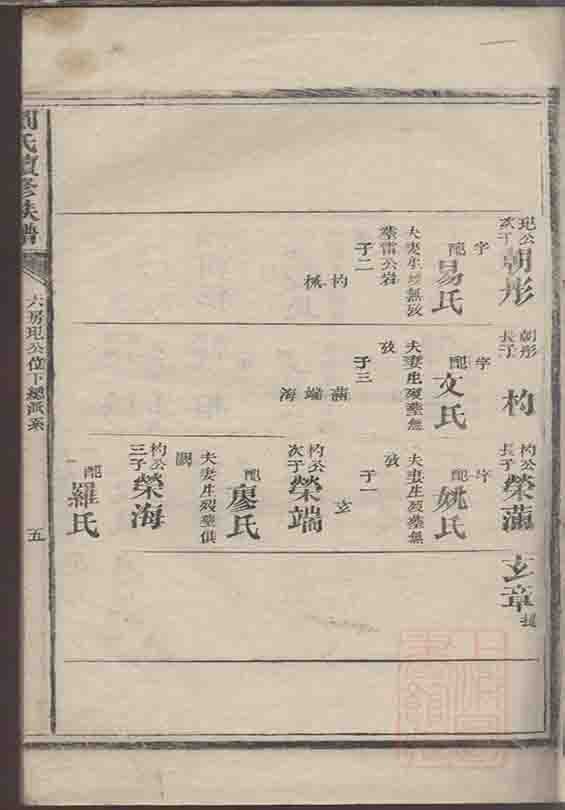 周氏續修族譜
六房玘公位下總派系
五
玘公次子
朝彤
字
配
易氏
夫妻生歿無攷
葬雷公岩
子二
杓
楸
朝彤長子
杓
字
配
文氏
夫妻生歿葬無
攷
子三
蒲
端
海
杓公長子
榮蒲
字
配
姚氏
夫妻生歿葬無
攷
子一
玄
杓公次子
榮端
配
廖氏
夫妻生歿葬俱
闕
杓公三子
榮海
配
羅氏
玄章